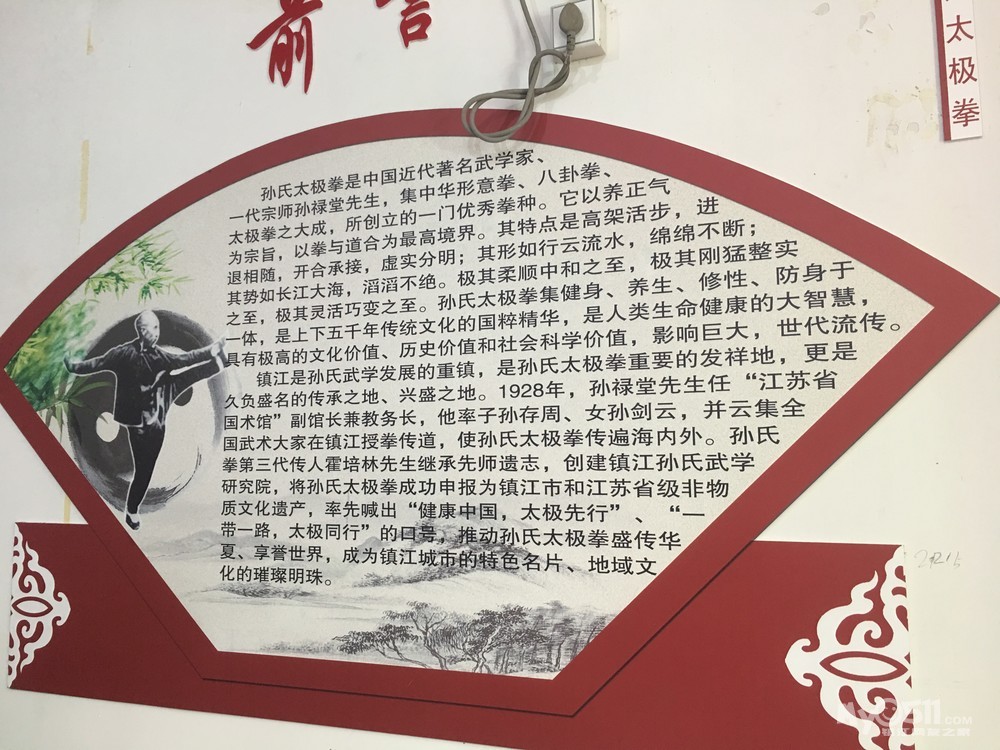 前言
太极拳
孙氏太极拳是中国近代著名武学家、
一代宗师孙禄堂先生，集中华形意拳、八卦拳、
太极拳之大成，所创立的一门优秀拳种。它以养正气
为宗旨，以拳与道合为最高境界。其特点是高架活步，进
退相随，开合承接，虚实分明；其形如行云流水，绵绵不断；
其势如长江大海，滔滔不绝。极其柔顺中和之至，极其刚猛整实
之至，极其灵活巧变之至。孙氏太极拳集健身、养生、修性、防身于
一体，是上下五千年传统文化的国粹精华，是人类生命健康的大智慧，
具有极高的文化价值、历史价值和社会科学价值，影响巨大，世代流传。
镇江是孙氏武学发展的重镇，是孙氏太极拳重要的发祥地，更是
久负盛名的传承之地、兴盛之地。1928年，孙禄堂先生任“江苏省
国术馆”副馆长兼教务长，他率子孙存周、女孙剑云，并云集全
国武术大家在镇江授拳传道，使孙氏太极拳传遍海内外。孙氏
拳第三代传人霍培林先生继承先师遗志，创建镇江孙氏武学
研究院，将孙氏太极拳成功申报为镇江市和江苏省级非物
质文化遗产，率先喊出“健康中国，太极先行”、“一
带一路，太极同行”的口号，推动孙氏太极拳盛传华
夏、享誉世界，成为镇江城市的特色名片、地域文
化的璀璨明珠。
My0511.COM